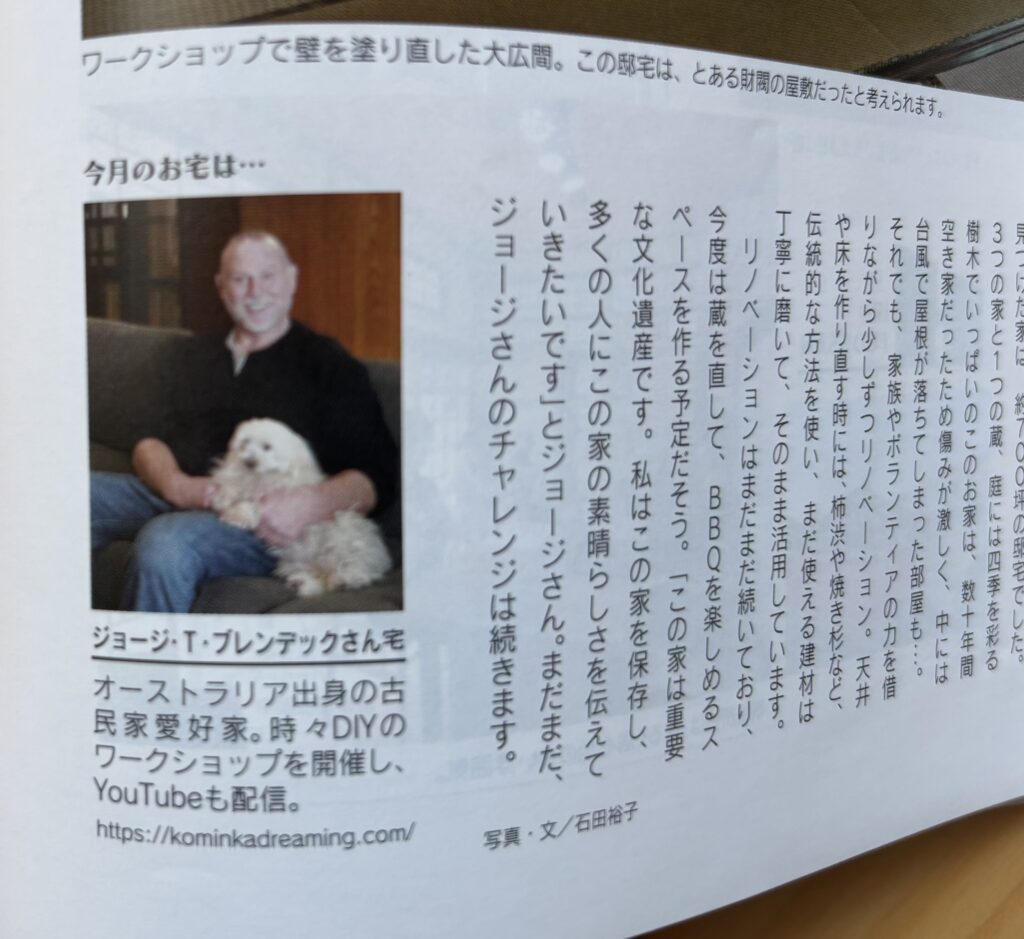 ワークショップで壁を塗り直した大広間。この邸宅は、とある財閥の屋敷だったと考えられます。
見つけた家は、総700坪の邸宅でした。
3つの家と1つの蔵、庭には四季を彩る
樹木でいっぱいのこのお家は、数十年間
空き家だったため傷みが激しく、中には
台風で屋根が落ちてしまった部屋も…。
それでも、家族やボランティアの力を借
りながら少しずつリノベーション。天井
や床を作り直す時には、柿渋や焼き杉など、
伝統的な方法を使い、まだ使える建材は
丁寧に磨いて、そのまま活用しています。
リノベーションはまだまだ続いており、
今度は蔵を直して、BBQを楽しめるス
ペースを作る予定だそう。「この家は重要
な文化遺産です。私はこの家を保存し、
多くの人にこの家の素晴らしさを伝えて
いきたいです」とジョージさん。まだまだ、
ジョージさんのチャレンジは続きます。
写真・文／石田裕子
今月のお宅は…
ジョージ・T・ブレンデックさん宅
オーストラリア出身の古
民家愛好家。時々DIYの
ワークショップを開催し、
YouTubeも配信。
https://kominkadreaming.com/